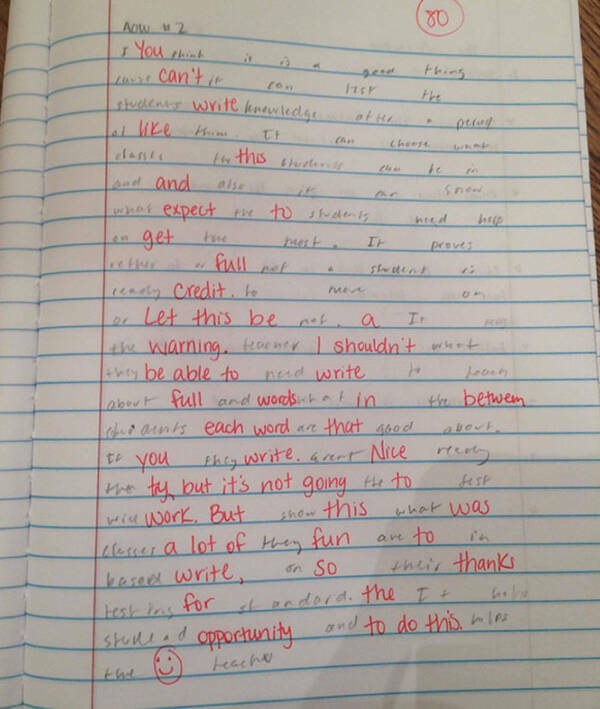 80
AOW # 2
I You think it is a good thing
cause can't it can test the
students write knowledge after a period
of like them. It can choose what
classes the this students can be in
and and also it can show
what expect the to students need help
on get the most. It proves
rether or full not a student is
ready credit. to move on
or Let this be not. a It
the warning. teacher I shouldn't what
they be able to need write to teach
about full and words what in the betwem
students each word are that good about.
If you they write. arent Nice ready
the ty, but it's not going the to test
will work. But show this what was
classes a lot of they fun are to in
based write, on so their thanks
testing for standard. the It helps
student opportunity and to do this. helps
the teacher